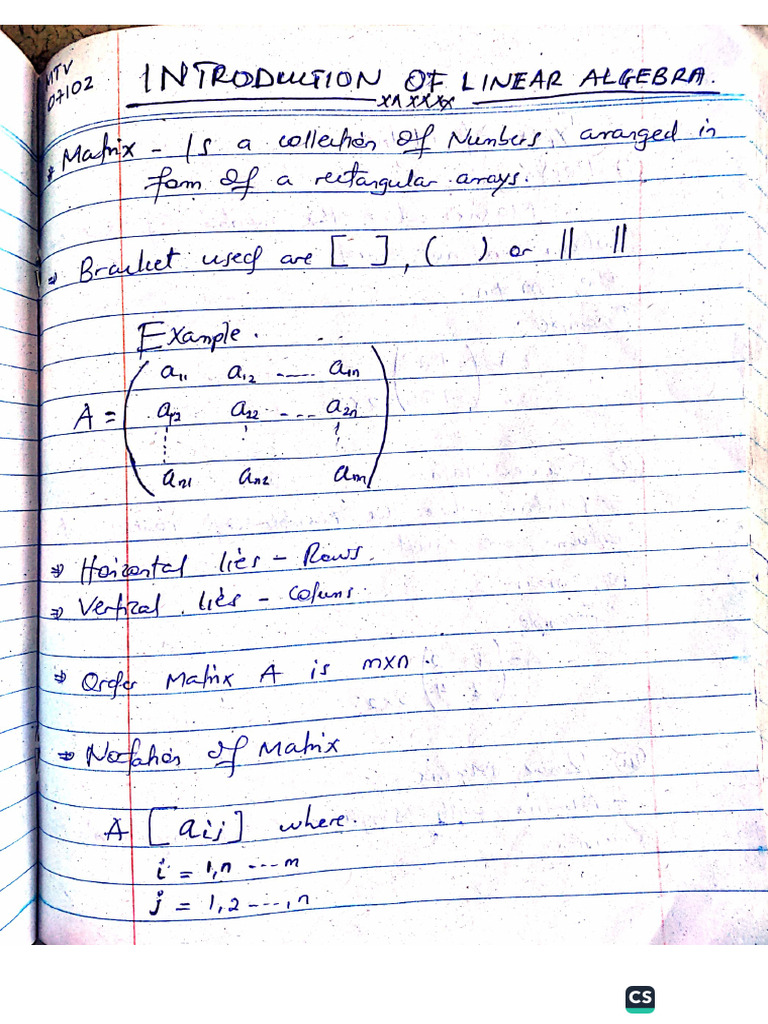 MTV
07102
INTRODUCTION OF LINEAR ALGEBRA.
xx xxxx
* Matrix - Is a collection of Numbers, arranged in
form of a rectangular arrays.
⇒ Bracket used are [ ], ( ) or || ||
Example.
a₁₁ a₁₂ ..... a₁n
A = ( a₁₂ a₂₂ .... a₂n )
an₁ an₂ am
⇒ Horizontal lies - Rows.
⇒ Vertical lies - Coluns.
⇒ Order Matrix A is mxn.
⇒ Notation of Matrix
A [aij] where.
i = 1,n ---m
j = 1,2 ---,n
CS